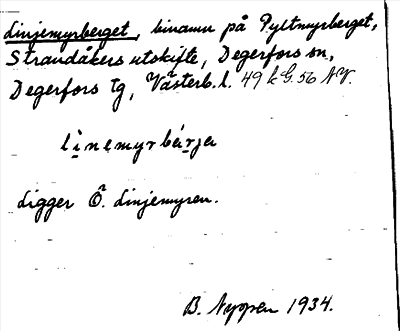 Linjemyrberget, binamn på Pyltmyrberget,
Strandåkers utskifte, Degerfors sn,
Degerfors tg, Västerb. l. 49 k G. 56 NV.
line̥myrbárja
Ligger Ö. Linjemyren.
B. Nyman 1934.